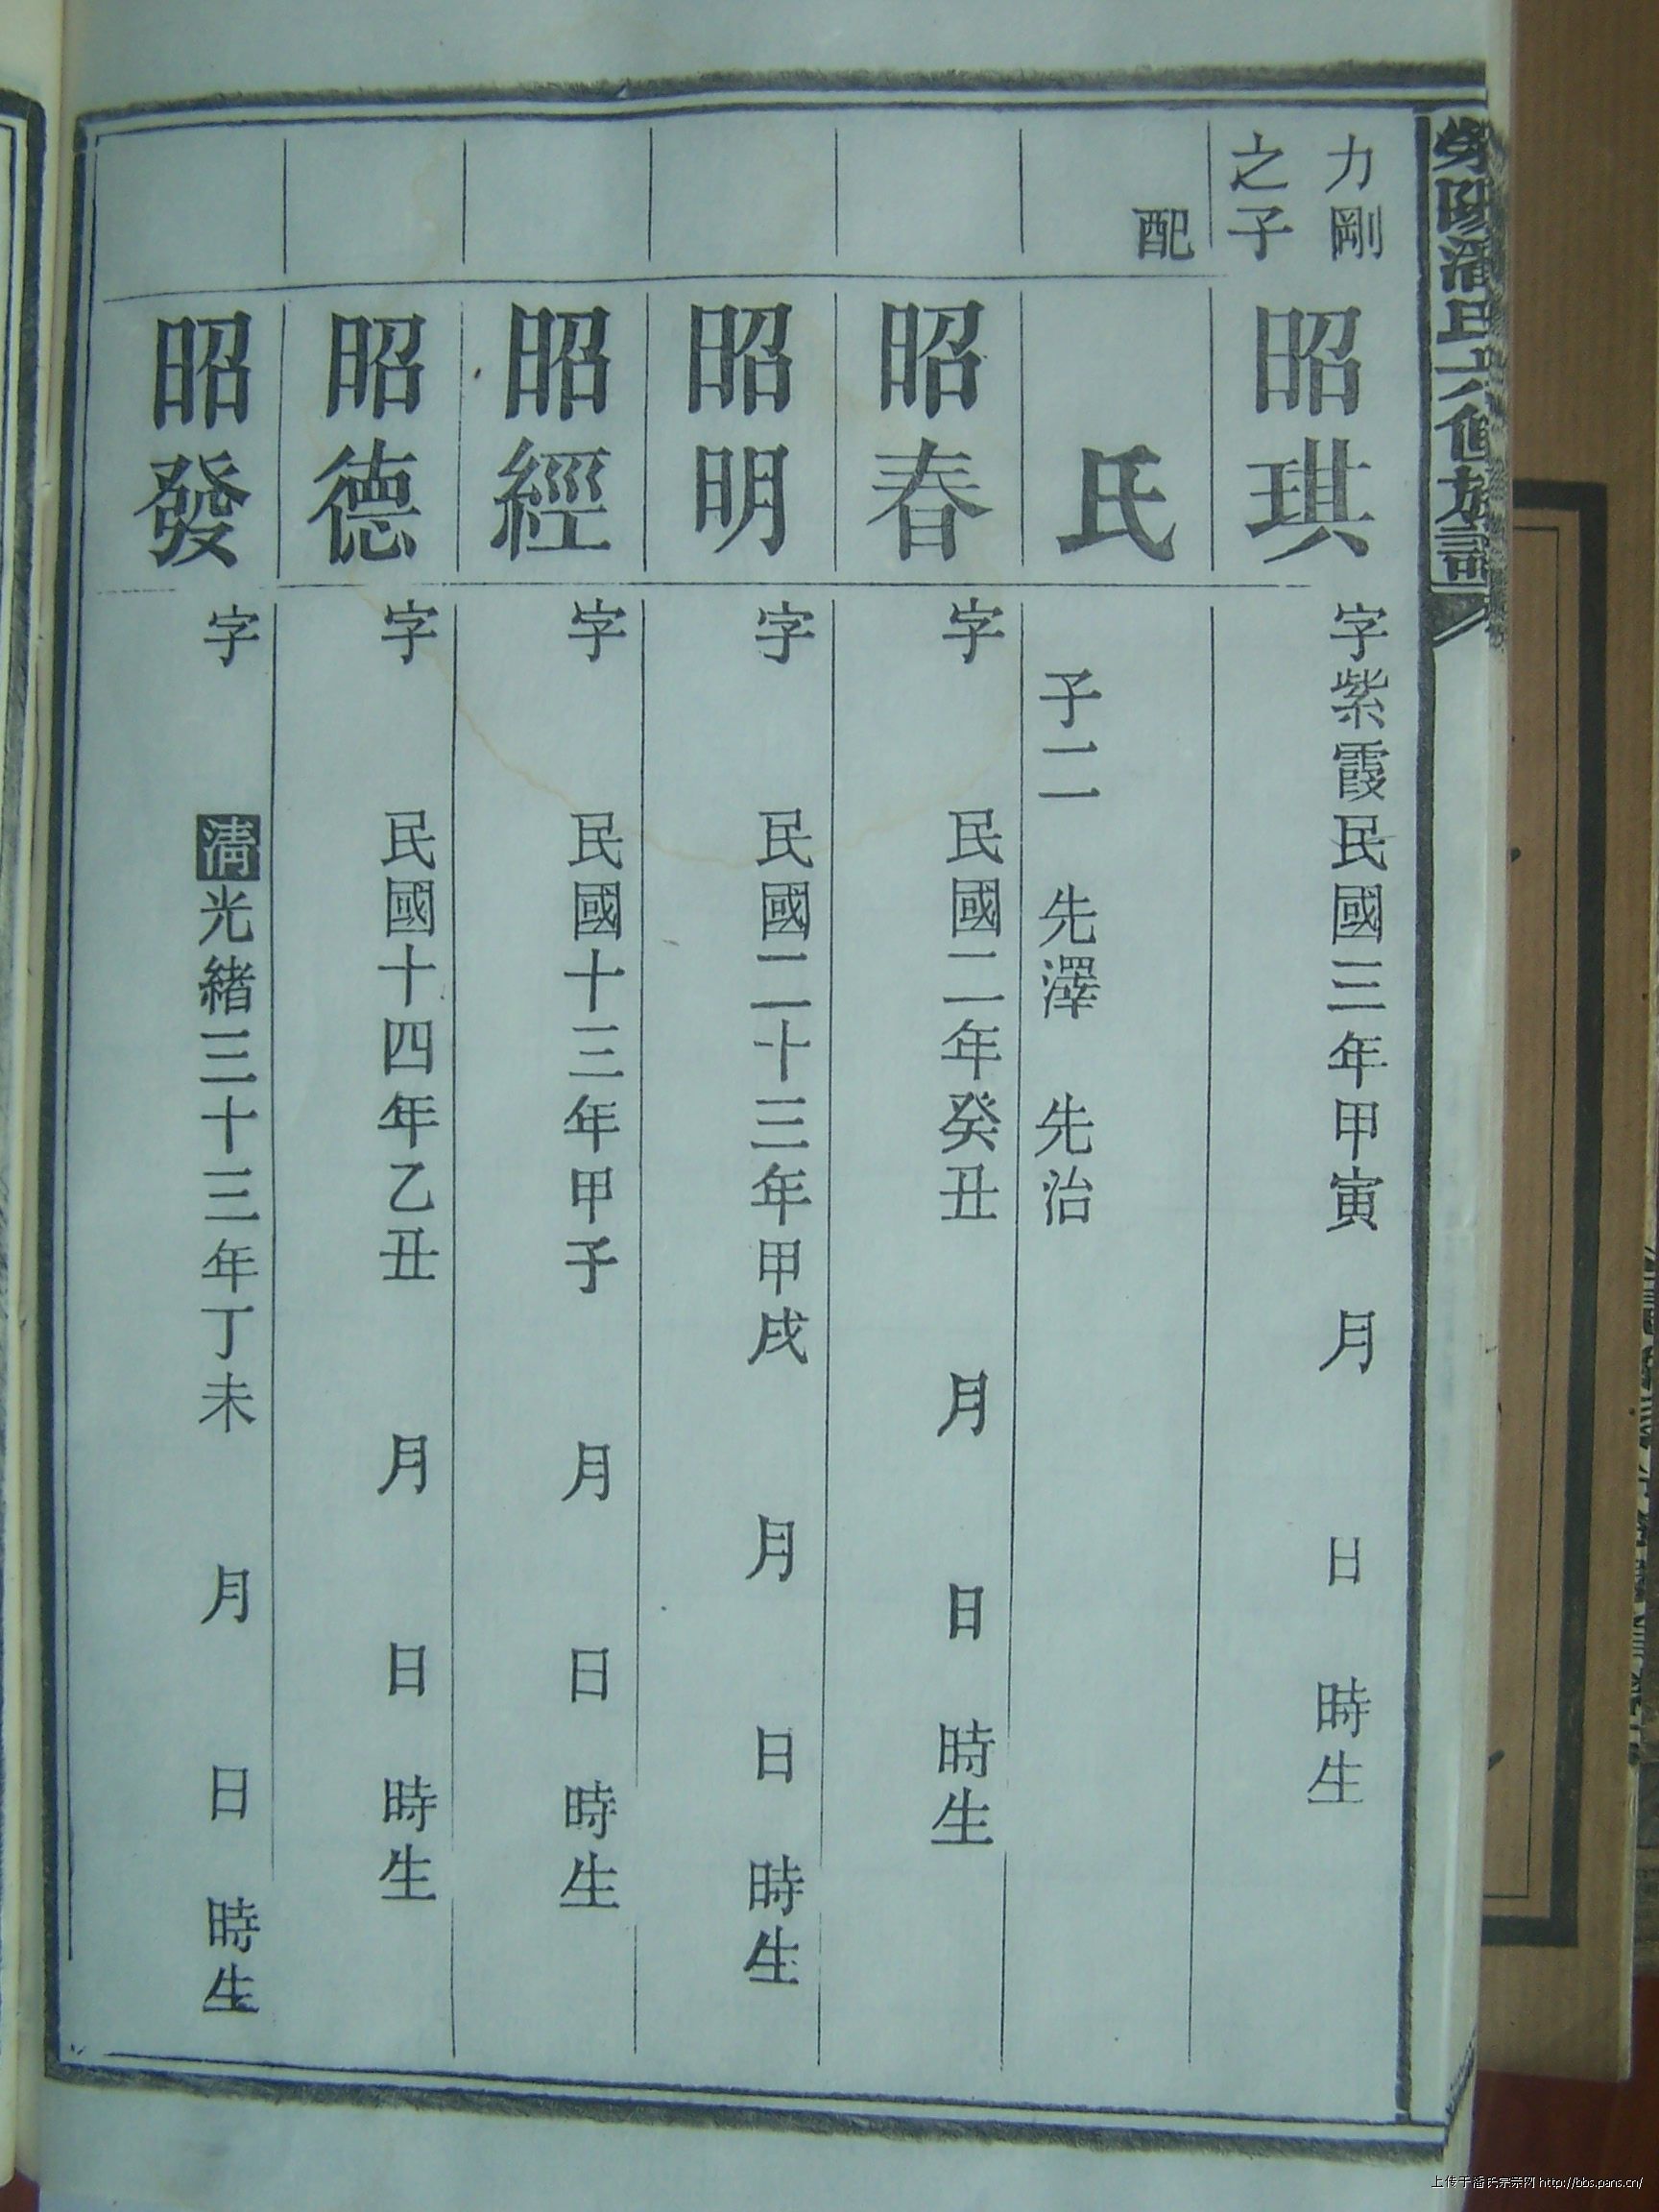 滎陽潘氏六修族譜
力剛
之子
昭琪
字紫霞民國三年甲寅 月 日 時生
配
氏
子二 先澤 先治
昭春
字 民國二年癸丑 月 日 時生
昭明
字 民國二十三年甲戌 月 日 時生
昭經
字 民國十三年甲子 月 日 時生
昭德
字 民國十四年乙丑 月 日 時生
昭發
字 清光緒三十三年丁未 月 日 時生
上传于潘氏宗亲网 http://bbs.pans.cn/